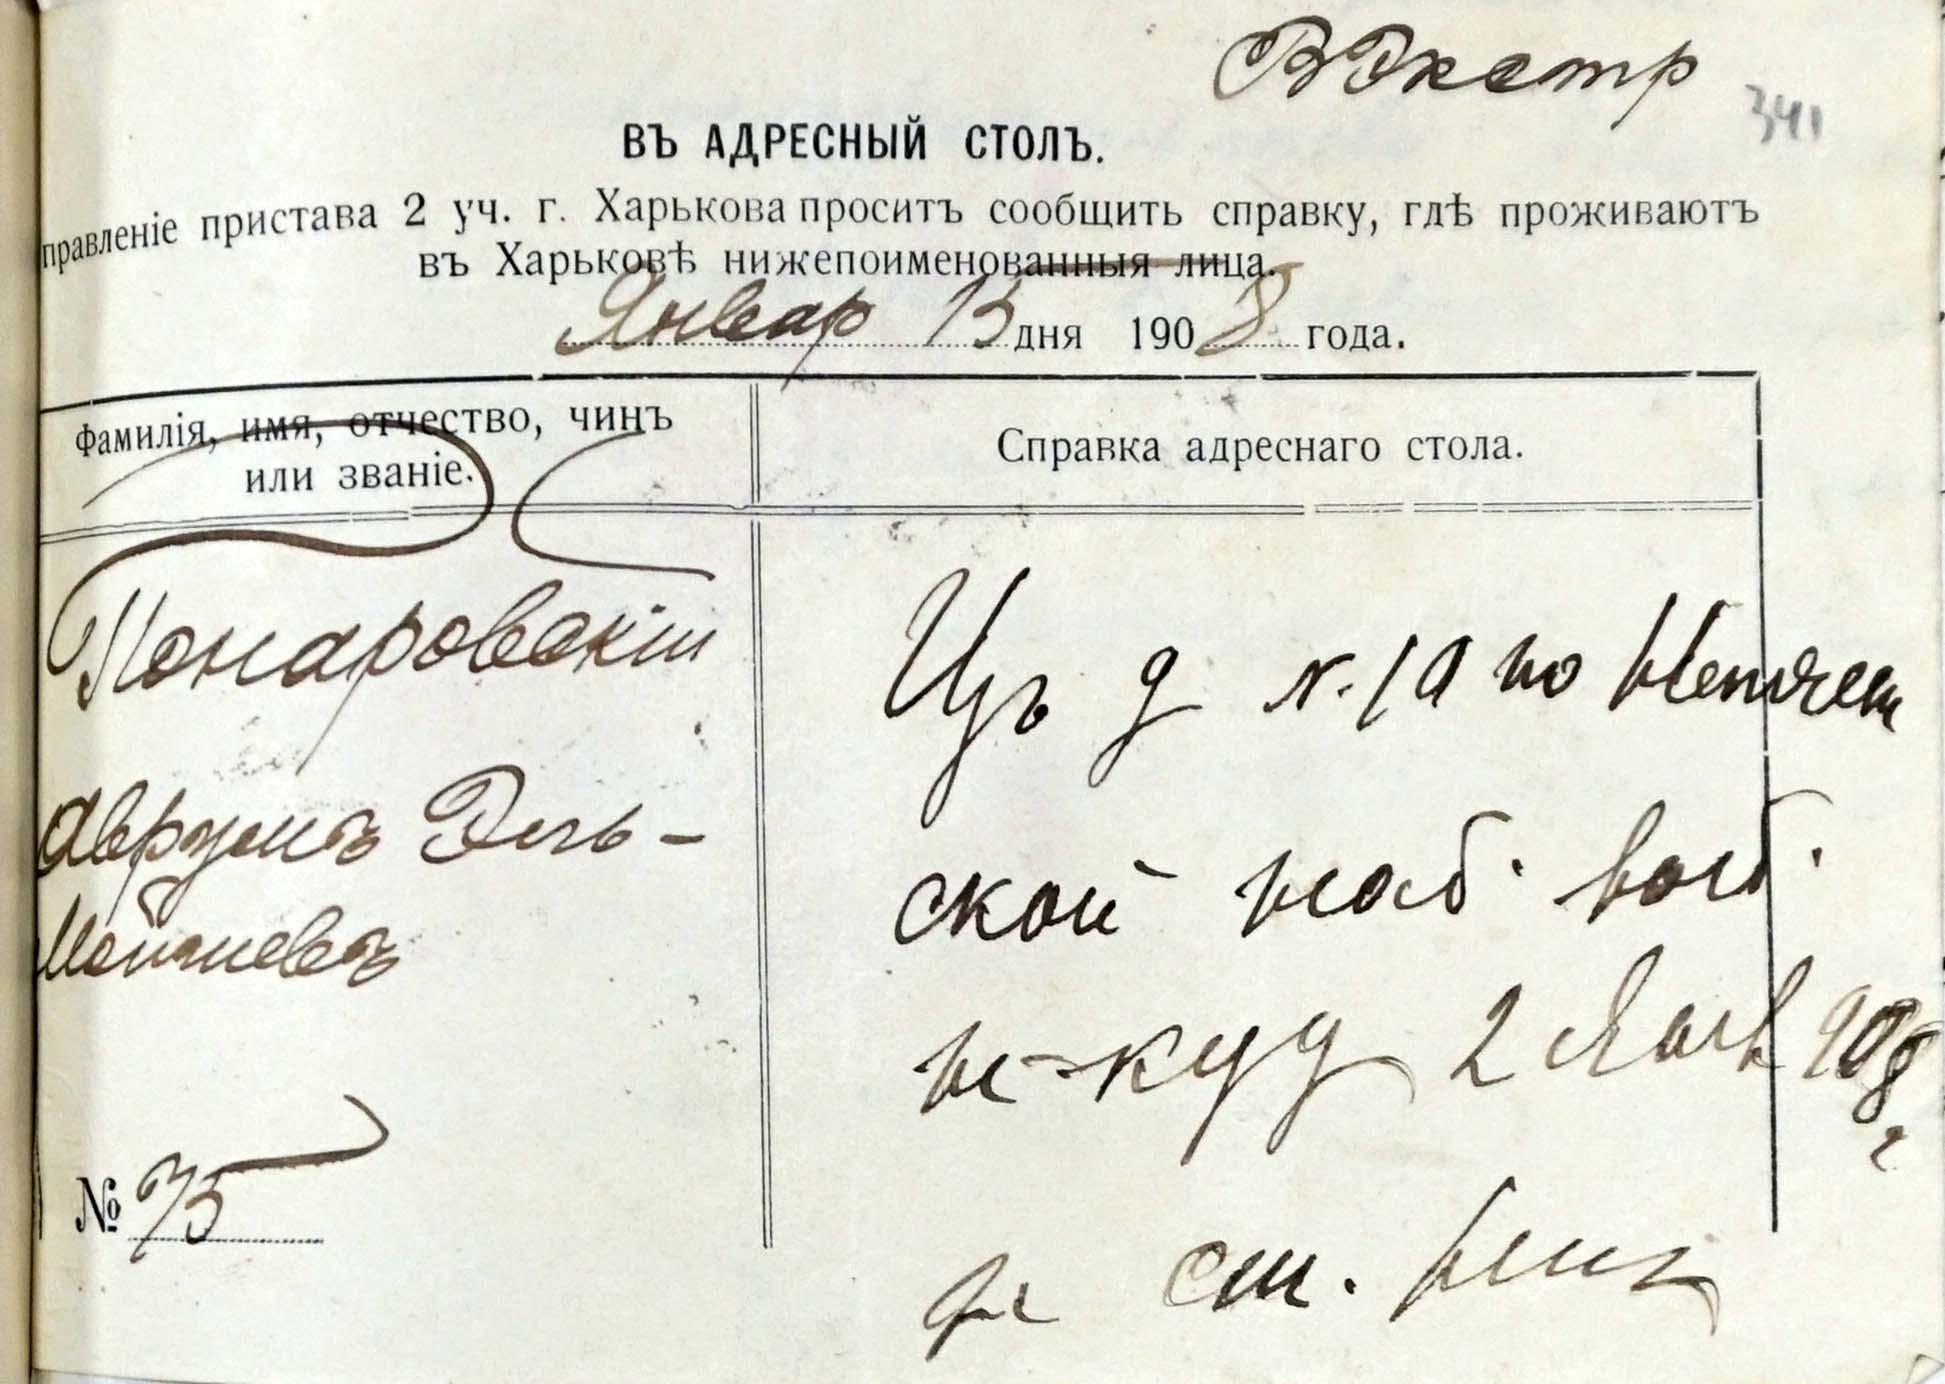 ВЭкстр
341
ВЪ АДРЕСНЫЙ СТОЛЪ.
правленіе пристава 2 уч. г. Харькова проситъ сообщить справку, гдѣ проживаютъ
въ Харьковѣ нижепоименованныя лица.
Январ 13 дня 1908 года.
Фамилія, имя, отчество, чинъ
или званіе.
Справка адреснаго стола.
Понаровскій
Аврумъ Эль-
Мойшевъ
№ 75
Изъ д № 19 по Нетечен
ской наб. выб.
н-куд 2 Янв 908
г